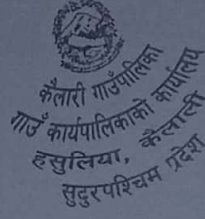 कैलारी गाउँपालिका
गाउँ कार्यपालिकाको कार्यालय
हसुलिया, कैलाली
सुदुरपश्चिम प्रदेश